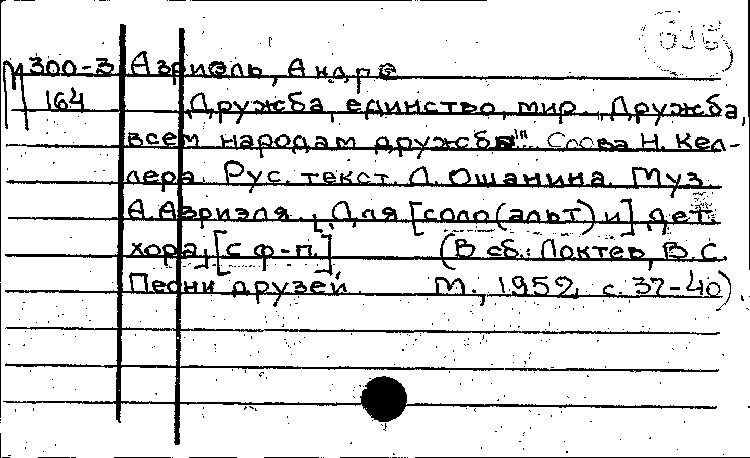 М 300-3 Азриэль, Андре
164 "Дружба, единство, мир... Дружба,
всем народам дружба!" Слова Н. Кел-
лера. Рус. текст Л. Ошанина. Муз.
А. Азриэля. [Для [соло (альт) и] дет.
хора], [с ф-п.] (В сб.: Локтев, В.С.
Песни друзей. М., 1952, с. 37-40).